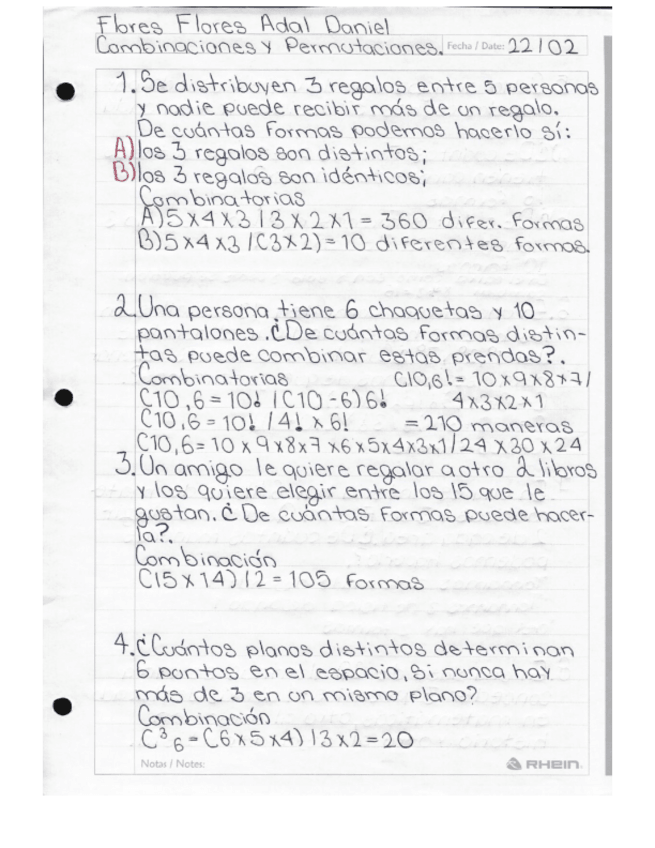 Flores Flores Adal Daniel
Combinaciones y Permutaciones. Fecha / Date: 22/02
1. Se distribuyen 3 regalos entre 5 personas
y nadie puede recibir más de un regalo.
De cuántas formas podemos hacerlo sí:
A) los 3 regalos son distintos;
B) los 3 regalos son idénticos;
Combinatorias
A) 5 x 4 x 3 / 3 x 2 x 1 = 360 difer. formas
B) 5 x 4 x 3 / (3 x 2) = 10 diferentes formas.
2. Una persona tiene 6 chaquetas y 10
pantalones. ¿De cuántas formas distin-
tas puede combinar estas prendas?.
Combinatorias C10,6! = 10 x 9 x 8 x 7 /
C10,6 = 10! / (10 - 6) 6! 4 x 3 x 2 x 1
C10,6 = 10! / 4! x 6! = 210 maneras
C10,6 = 10 x 9 x 8 x 7 x 6 x 5 x 4 x 3 x 1 / 24 x 30 x 24
3. Un amigo le quiere regalar a otro 2 libros
y los quiere elegir entre los 15 que le
gustan. ¿De cuántas formas puede hacer-
la?.
Combinación
(15 x 14) / 2 = 105 formas
4. ¿Cuántos planos distintos determinan
6 puntos en el espacio, si nunca hay
más de 3 en un mismo plano?
Combinación
C³6 = (6 x 5 x 4) / 3 x 2 = 20
Notas / Notes: RHEIN